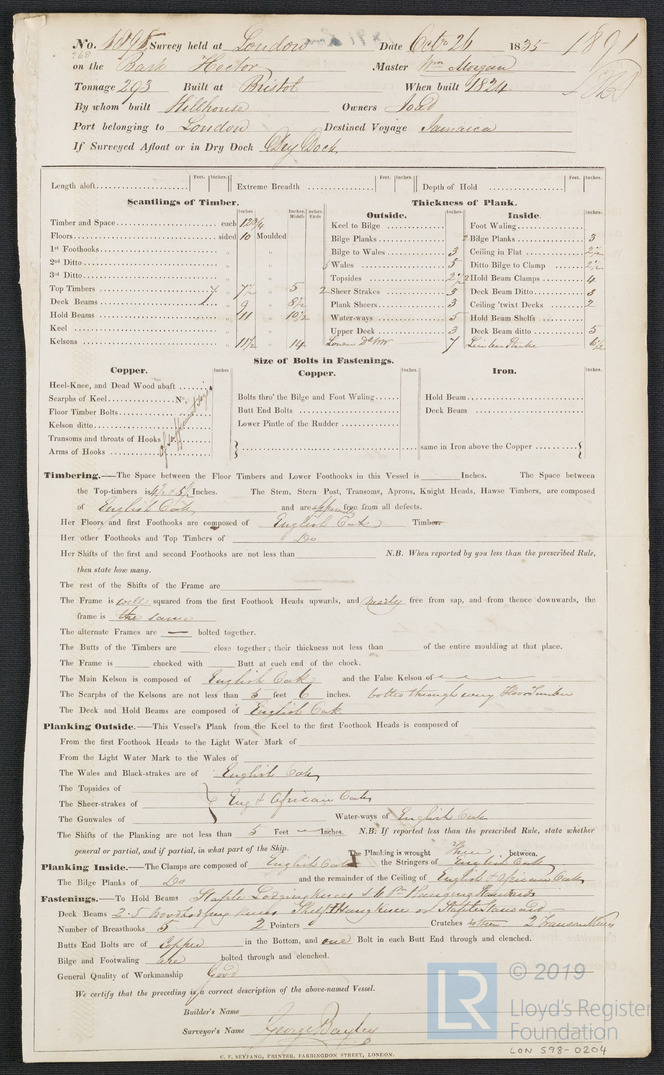 No. Survey held at London Date Octr 26 1835 1891
on the Bark Hector Master Wm Morgan
Tonnage 293 Built at Bristol When built 1824
By whom built Hillhouse Owners
Port belonging to London Destined Voyage Jamaica
If Surveyed Afloat or in Dry Dock Dry Dock.
Feet. Inches. Feet. Inches. Feet. Inches.
Length aloft Extreme Breadth Depth of Hold
Scantlings of Timber. Thickness of Plank.
Outside. Inside.
Timber and Space each 12 3/4
Floors sided 10 Moulded
1st Foothooks
2nd Ditto
3rd Ditto
Top Timbers 7 5
Deck Beams 9 8 1/2
Hold Beams 11 10 1/2
Keel
Kelsons 11 1/2 14
Keel to Bilge
Bilge Planks
Bilge to Wales 3
Wales 5
Topsides 2 1/2
Sheer Strakes 3
Plank Sheers 3
Water-ways 5
Upper Deck 3
7
Foot Waling
Bilge Planks 3
Ceiling in Flat 2 1/2
Ditto Bilge to Clamp 2 1/2
Hold Beam Clamps 4
Deck Beam Ditto 3
Ceiling 'twixt Decks 2
Hold Beam Shelfs
Deck Beam ditto 5
Size of Bolts in Fastenings.
Copper. Copper. Iron.
Heel-Knee, and Dead Wood abaft
Scarphs of Keel No.
Floor Timber Bolts
Kelson ditto
Transoms and throats of Hooks
Arms of Hooks
of sufficient size
Bolts thro' the Bilge and Foot Waling
Butt End Bolts
Lower Pintle of the Rudder
Hold Beam
Deck Beam
same in Iron above the Copper
Timbering.—The Space between the Floor Timbers and Lower Foothooks in this Vessel is Inches. The Space between
the Top-timbers is Inches. The Stem, Stern Post, Transoms, Aprons, Knight Heads, Hawse Timbers, are composed
of English Oak and are free from all defects.
Her Floors and first Foothooks are composed of English Oak Timber
Her other Foothooks and Top Timbers of Do
Her Shifts of the first and second Foothooks are not less than N.B. When reported by you less than the prescribed Rule,
then state how many.
The rest of the Shifts of the Frame are
The Frame is well squared from the first Foothook Heads upwards, and nearly free from sap, and from thence downwards, the
frame is the same
The alternate Frames are — bolted together.
The Butts of the Timbers are close together; their thickness not less than of the entire moulding at that place.
The Frame is chocked with Butt at each end of the chock.
The Main Kelson is composed of English Oak and the False Kelson of
The Scarphs of the Kelsons are not less than 5 feet 6 inches. bolted through every Floor Timber
The Deck and Hold Beams are composed of English Oak
Planking Outside.—This Vessel's Plank from the Keel to the first Foothook Heads is composed of
From the first Foothook Heads to the Light Water Mark of
From the Light Water Mark to the Wales of
The Wales and Black-strakes are of English Oak
The Topsides of
The Sheer-strakes of Eng & African Oak
The Gunwales of Water-ways of English Oak
The Shifts of the Planking are not less than 5 Feet — Inches. N.B: If reported less than the prescribed Rule, state whether
general or partial, and if partial, in what part of the Ship. The Planking is wrought Three between.
Planking Inside.—The Clamps are composed of English Oak the Stringers of English Oak
The Bilge Planks of Do and the remainder of the Ceiling of English & African Oak
Fastenings.—To Hold Beams Staple Lodging Knees & 6 Pr Hanging Standards
Deck Beams 2
Number of Breasthooks 5 2 Pointers Crutches 2 Transom Knees
Butts End Bolts are of Copper in the Bottom, and one Bolt in each Butt End through and clenched.
Bilge and Footwaling are bolted through and clenched.
General Quality of Workmanship Good
We certify that the preceding is a correct description of the above-named Vessel.
Builder's Name
Surveyor's Name George Bayley
C. F. SEYFANG, PRINTER, FARRINGDON STREET, LONDON.
LR © 2019
Lloyd's Register
Foundation
LON 598-0204